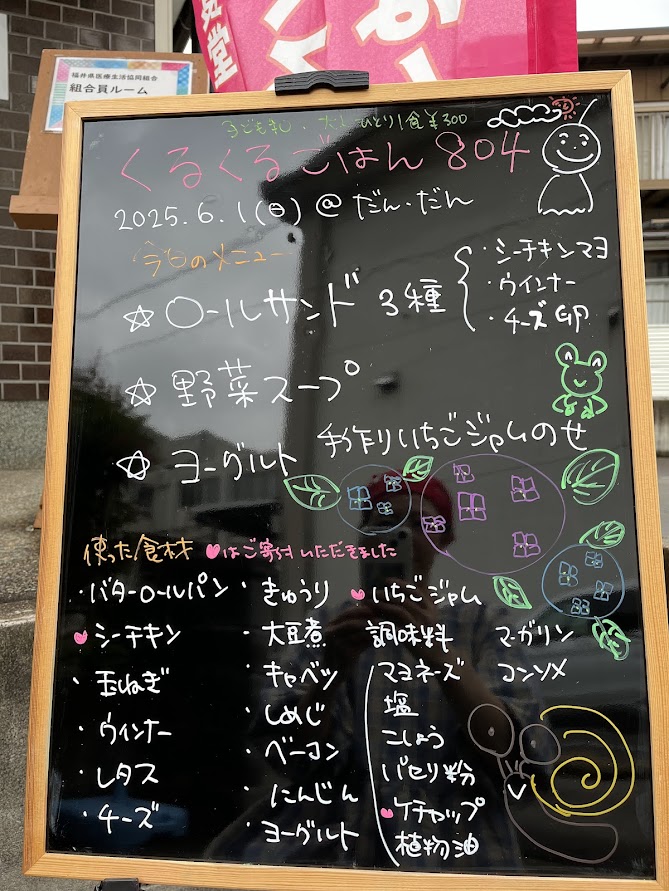 食堂
福井県医療生活協同組合
組合員ルーム
くるくるごはん 804
2025.6.1(日)@だん・だん
今日のメニュー
☆ロールサンド 3種
・シーチキンマヨ
・ウインナー
・チーズ
☆野菜スープ
☆ヨーグルト 手作りいちごジャムのせ
使った食材 ♥はご寄付いただきました
・バターロールパン
♥シーチキン
・玉ねぎ
・ウィンナー
・レタス
・チーズ
・きゅうり
・大豆煮
・キャベツ
・しめじ
・ベーコン
・にんじん
・ヨーグルト
♥いちごジャム
調味料
マヨネーズ
塩
こしょう
パセリ粉
♥ケチャップ
植物油
マーガリン
コンソメ